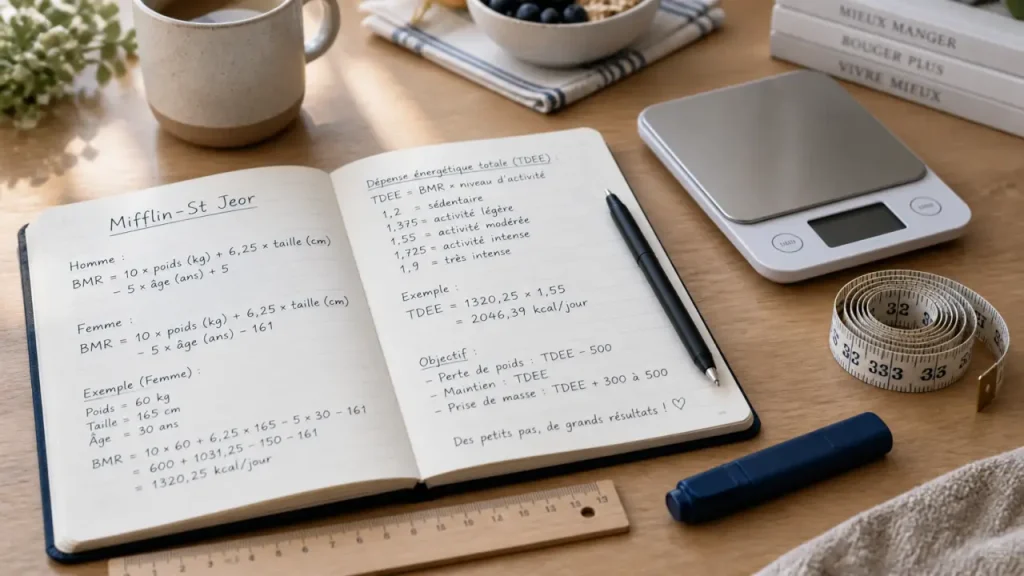 Mifflin-St Jeor
Homme :
BMR = 10 × poids (kg) + 6,25 × taille (cm)
- 5 × âge (ans) + 5
Femme :
BMR = 10 × poids (kg) + 6,25 × taille (cm)
- 5 × âge (ans) - 161
Exemple (Femme) :
Poids = 60 kg
Taille = 165 cm
Âge = 30 ans
BMR = 10 × 60 + 6,25 × 165 - 5 × 30 - 161
= 600 + 1031,25 - 150 - 161
= 1320,25 kcal/jour
Dépense énergétique totale (TDEE) :
TDEE = BMR × niveau d'activité
1,2 = sédentaire
1,375 = activité légère
1,55 = activité modérée
1,725 = activité intense
1,9 = très intense
Exemple :
TDEE = 1320,25 × 1,55
= 2046,39 kcal/jour
Objectif :
- Perte de poids : TDEE - 500
- Maintien : TDEE
- Prise de masse : TDEE + 300 à 500
Des petits pas, de grands résultats ! ♡
MIEUX MANGER
BOUGER PLUS
VIVRE MIEUX
32
33
33
33